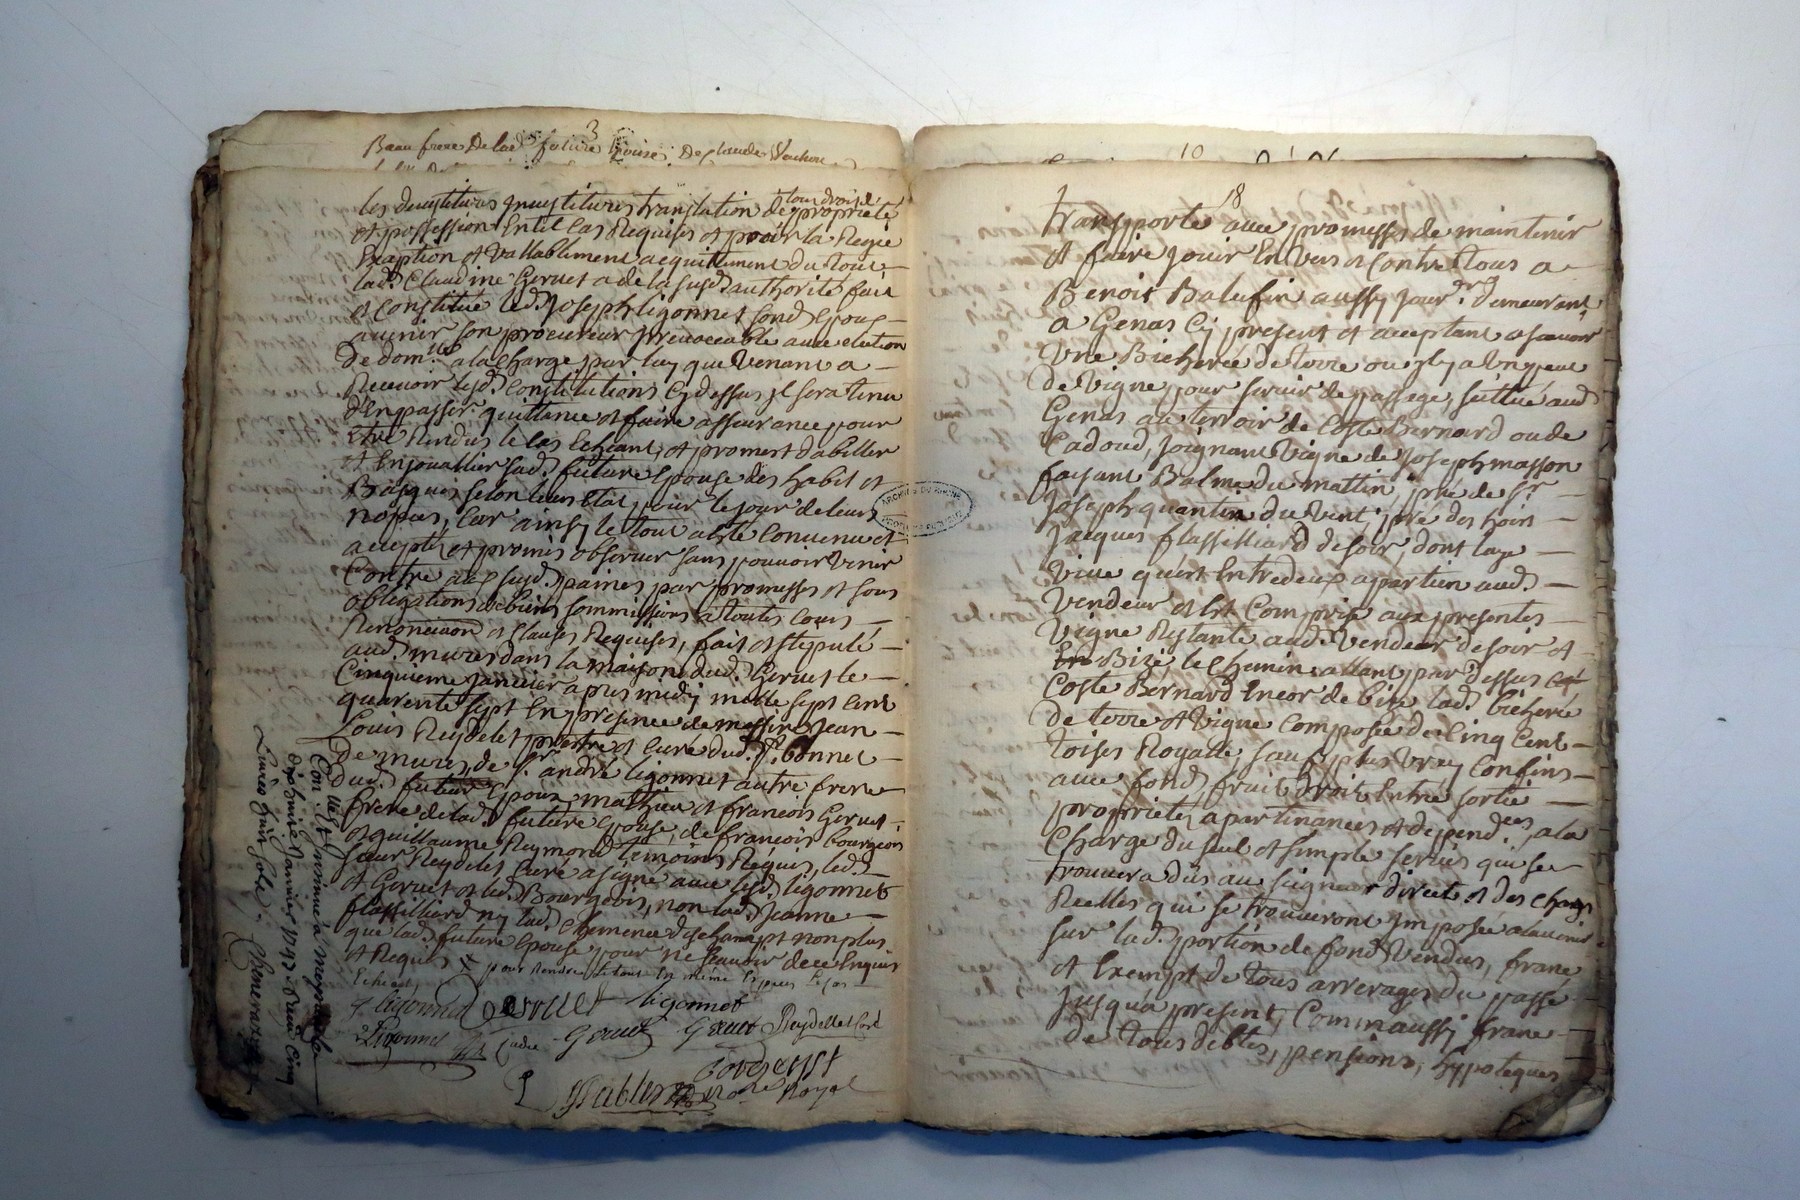 3
Beau frere de lad. future Epouse, de Claude Vachon
les devestitures Investitures translation de tous droits de propriété
et possession En tel Cas Requises et pour la Reelle
Exaption et Vallablement acquittement du tout,
lad. Claudine Gervet a de la susd. authorité fait
et Constitué led. Joseph ligonnet sond. Epoux
auenir son procureur Jrreuocable auec election
De domlle a la charge par luy que Venant a
Receuoir lesd. Constitutions Cy dessus jl sera tenu
d'En passer quittance et faire assurance pour
Etre Rendus le Cas Echeant, et promest d'abiller
et Enjouallier sad. future Epouse des habit et
Bagues selon leur Etat pour le jour de leurs
nopces, Car ainsy le tout a été Conuenu et
accepté et promis obseruer sans pouuoir Venir
Contre aux susd. paines par promesses et sous
obligations de biens sommissions a toutes Cours
Renonciation et Clauses Requises, fait et stipulé
aud. mures dans la maison dud. Geruet le
Cinquieme januier apres midy mille sept Cent
quarente sept En presence de messire Jean
Louis Reydelet prestre et Curé dud. St. bonnet
De mures, de Sr. andré ligonnet autre frere
dud. futur Epoux, mathieu et francois Geruet
frere de lad. future Epouse, de francois bourgeois
et guillaume Reymond temoins Requis, led.
sieur Reydelet Curé a signé auec lesd. ligonnet
et Geruet et led. Bourgeois, non lad. Jeanne
flassilliard ny lad. Clemence dechamp non plus
que lad. future Epouse pour ne scauoir de ce Enquis
et Requis x pour Rendre le tout En même
Echeant
ligonnet ligonnet
Ligonnet Geruet Geruet Reydellet Curé
Bourgeois
No.re Royal
Conllé et Insinué a
dix huit Januier 1747 Reçu Cinq
Liures
10
18
Transporté auec promesses de maintenir
et faire jouir Enuers et Contre tous a
Benoit Balufin aussy jour.er demeurant
a Genas Cy present et acceptant asauoir
Vne Bicherée de terre ou jl y a Vn peu
de Vigne pour seruir de passage, scittué aud.
Genas au terroir de Coste Bernard ou de
Cadoud, joignant Vigne de Joseph masson
faisant Balme du mattin, pré de Sr.
Joseph quantin du Vent, pré des hoirs
Jacques flassilliard de soir, dont la ge
Viue qui est Entredeux apartien aud.
Vendeur et Est Comprise aux presentes
Vigne Restante aud. Vendeur de soir et
En Bize le Chemin allant par dessus Cost
Coste Bernard Encor de bize lad. bicherée
de terre et Vigne Composée de Cinq Cent
toises Royalle, sauf plus Vray Confins
auec fond fruit Droit Entré sortie
proprietés apartinances et depend.ces, a la
Charge du seul et simple seruis qui se
trouuera dûs au seigneur direct et des Charges
Reelles qui se trouueront Jmposée alauenir
sur lad. portion de fond Vendus, franc
et Exempt de tous arrerages du passé
jusqu'a present, Comm'aussy franc
de tous debtes, pensions, hypoteques
ARCHIVES DU RHONE